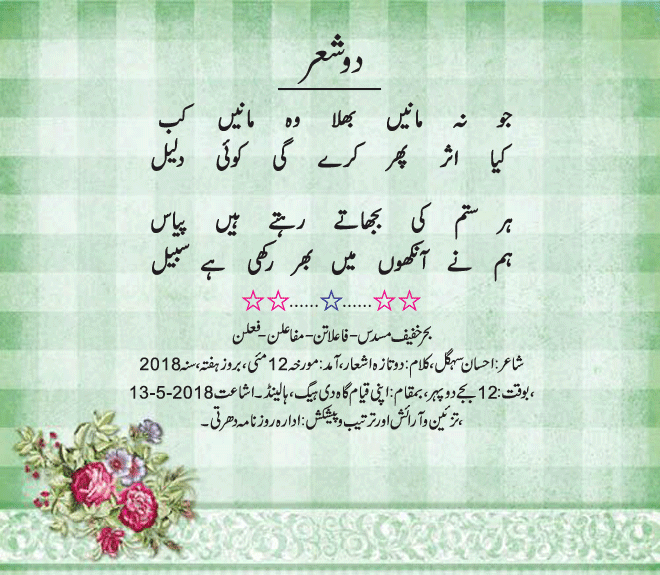 دو شعر
جو نہ مانیں بھلا وہ مانیں کب
کیا اثر پھر کرے گی کوئی دلیل
ہر ستم کی بجھاتے رہتے ہیں پیاس
ہم نے آنکھوں میں بھر رکھی ہے سبیل
☆☆......☆......☆☆
بحر خفیف مسدس-فاعلاتن-مفاعلن-فعلن
شاعر:احسان سہگل،کلام:دوتازہ اشعار،آمد:مورخہ 12 مئی،بروز ہفتہ،سنہ 2018
،بوقت:12 بجے دوپہر،بمقام:اپنی قیام گاہ دی ہیگ،ہالینڈ۔اشاعت 2018-5-13
،تزئین و آرائش اور ترتیب و پیشکش:ادارہ روزنامہ دھرتی۔